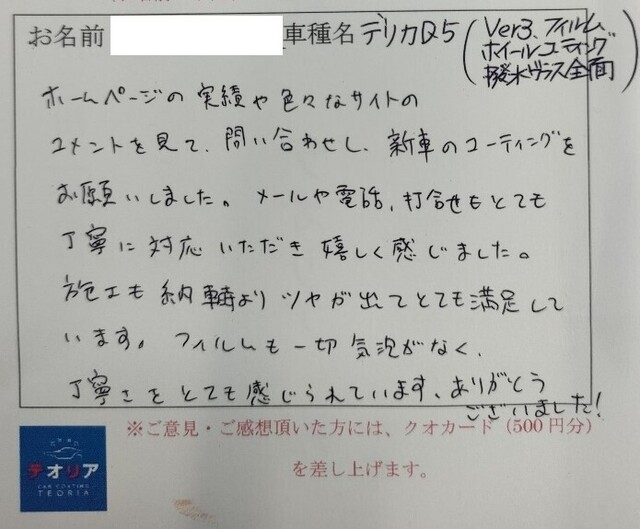 お名前 車種名 デリカD5
(Ver3、フィルム
ホイールコーティング
撥水ガラス全面)
ホームページの実績や色々なサイトの
コメントを見て、問い合わせし、新車のコーティングを
お願いしました。メールや電話、打合せもとても
丁寧に対応いただき嬉しく感じました。
施工も納車時よりツヤが出てとても満足して
います。フィルムも一切気泡がなく、
丁寧さをとても感じられています、ありがとう
ございました!
※ご意見・ご感想頂いた方には、クオカード(500円分)
を差し上げます。
テオリア
CAR COATING
TEORIA